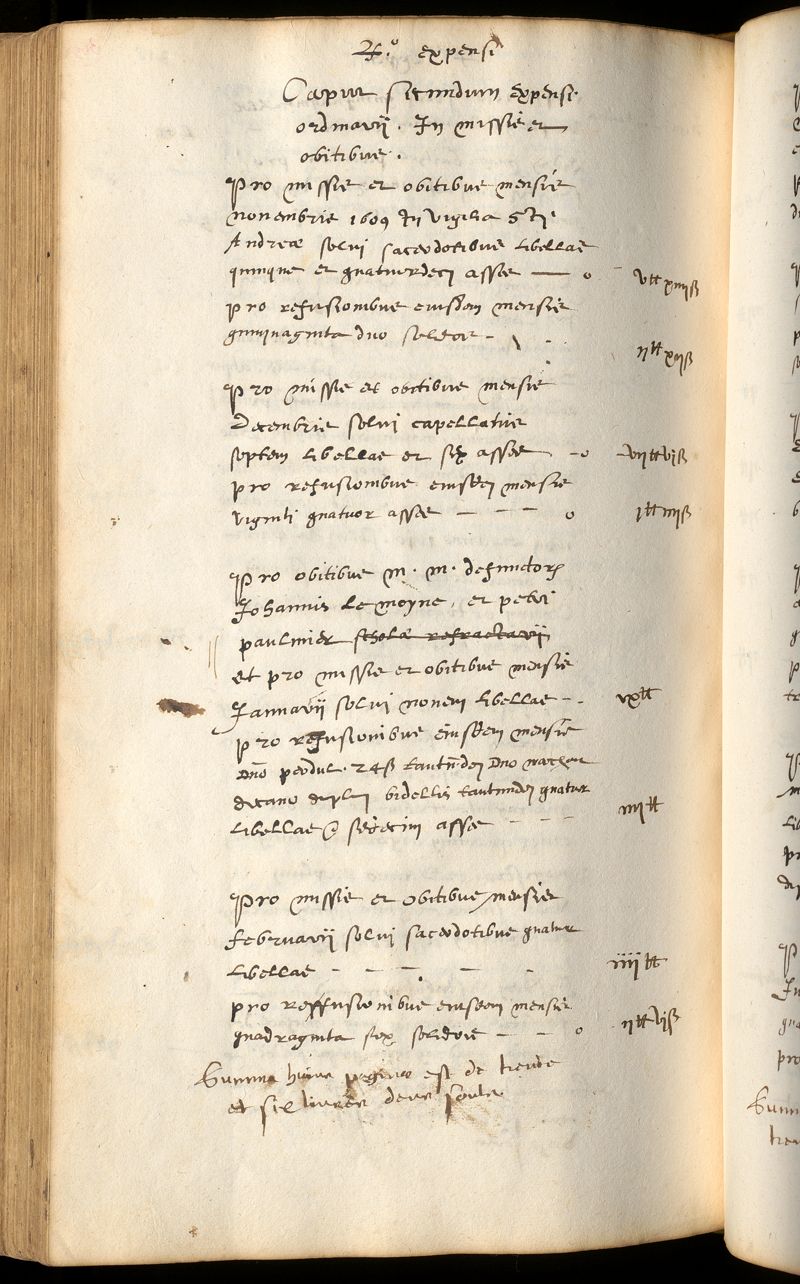 2.° expensi
Caput secundum expensi
ordinarii. In missis et
obitibus.
Pro missis et obitibus mensis
novembris 1609 In vigilia Sti
Andreæ solvi sacerdotibus libellas
quinque et quatuordecim asses — o vtt xiiiiß
pro refusionibus eiusdem mensis
quinquaginta duo solidos - iitt xiiß
Pro missis et obitibus mensis
Decembris solvi capellanis
septem libellas et sex asses - o viitt viß
pro refusionibus eiusdem mensis
viginti quatuor asses — — — o itt iiiiß
Pro obitibus m. m. defunctorum
Johannis le moyne, et petri
paulmier scholæ refractarii
et pro missis et obitibus mensis
Januarii solvi novem libellas - - ixtt
pro refusionibus eiusdem mensis
Dno 24ß tantundem Dno
decano bidellis tantundem quatuor
libellas sedecim asses - - - iiiitt
Pro missis et obitibus mensis
februarii solvi sacerdotibus quatuor
libellas - - - - - iiiitt
pro reffusionibus eiusdem mensis
quadraginta sex solidos - - o iitt viß
Summa huius paginæ est de trente
et six livres deux soulz